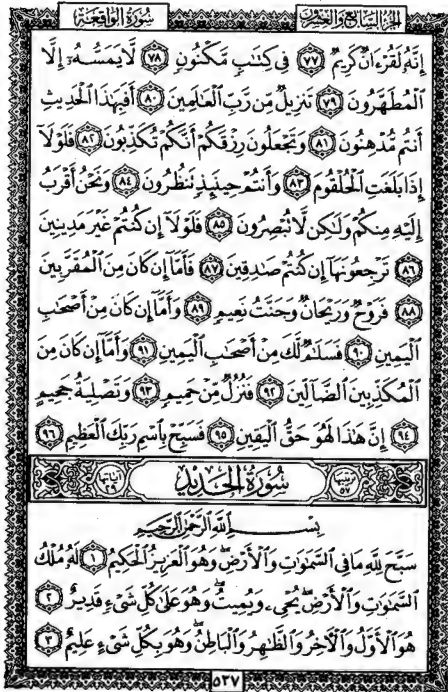 الجزء السابع والعشرون سورة الواقعة
إِنَّهُۥ لَقُرْءَانٌ كَرِيمٌ ٧٧ فِى كِتَٰبٍ مَّكْنُونٍ ٧٨ لَّا يَمَسُّهُۥٓ إِلَّا
ٱلْمُطَهَّرُونَ ٧٩ تَنزِيلٌ مِّن رَّبِّ ٱلْعَٰلَمِينَ ٨٠ أَفَبِهَٰذَا ٱلْحَدِيثِ
أَنتُم مُّدْهِنُونَ ٨١ وَتَجْعَلُونَ رِزْقَكُمْ أَنَّكُمْ تُكَذِّبُونَ ٨٢ فَلَوْلَآ
إِذَا بَلَغَتِ ٱلْحُلْقُومَ ٨٣ وَأَنتُمْ حِينَئِذٍ تَنظُرُونَ ٨٤ وَنَحْنُ أَقْرَبُ
إِلَيْهِ مِنكُمْ وَلَٰكِن لَّا تُبْصِرُونَ ٨٥ فَلَوْلَآ إِن كُنتُمْ غَيْرَ مَدِينِينَ
٨٦ تَرْجِعُونَهَآ إِن كُنتُمْ صَٰدِقِينَ ٨٧ فَأَمَّآ إِن كَانَ مِنَ ٱلْمُقَرَّبِينَ
٨٨ فَرَوْحٌ وَرَيْحَانٌ وَجَنَّتُ نَعِيمٍ ٨٩ وَأَمَّآ إِن كَانَ مِنْ أَصْحَٰبِ
ٱلْيَمِينِ ٩٠ فَسَلَٰمٌ لَّكَ مِنْ أَصْحَٰبِ ٱلْيَمِينِ ٩١ وَأَمَّآ إِن كَانَ مِنَ
ٱلْمُكَذِّبِينَ ٱلضَّآلِّينَ ٩٢ فَنُزُلٌ مِّنْ حَمِيمٍ ٩٣ وَتَصْلِيَةُ جَحِيمٍ
٩٤ إِنَّ هَٰذَا لَهُوَ حَقُّ ٱلْيَقِينِ ٩٥ فَسَبِّحْ بِٱسْمِ رَبِّكَ ٱلْعَظِيمِ ٩٦
ترتيبها ٥٧ سورة الحديد آياتها ٢٩
بِسْمِ ٱللَّهِ ٱلرَّحْمَٰنِ ٱلرَّحِيمِ
سَبَّحَ لِلَّهِ مَا فِى ٱلسَّمَٰوَٰتِ وَٱلْأَرْضِ ۖ وَهُوَ ٱلْعَزِيزُ ٱلْحَكِيمُ ١ لَهُۥ مُلْكُ
ٱلسَّمَٰوَٰتِ وَٱلْأَرْضِ ۖ يُحْىِۦ وَيُمِيتُ ۖ وَهُوَ عَلَىٰ كُلِّ شَىْءٍ قَدِيرٌ ٢
هُوَ ٱلْأَوَّلُ وَٱلْءَاخِرُ وَٱلظَّٰهِرُ وَٱلْبَاطِنُ ۖ وَهُوَ بِكُلِّ شَىْءٍ عَلِيمٌ ٣
٥٣٧